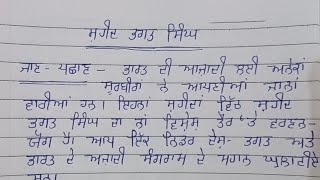 ਸ਼ਹੀਦ ਭਗਤ ਸਿੰਘ
ਜਾਣ-ਪਛਾਣ- ਭਾਰਤ ਦੀ ਆਜ਼ਾਦੀ ਲਈ ਅਨੇਕਾਂ
ਸੂਰਬੀਰਾਂ ਨੇ ਆਪਣੀਆਂ ਜਾਨਾਂ
ਵਾਰੀਆਂ ਹਨ। ਇਹਨਾਂ ਸ਼ਹੀਦਾਂ ਵਿੱਚ ਸ਼ਹੀਦ
ਭਗਤ ਸਿੰਘ ਦਾ ਨਾਂ ਵਿਸ਼ੇਸ਼ ਤੌਰ 'ਤੇ ਵਰਣਨ-
ਯੋਗ ਹੈ। ਆਪ ਇੱਕ ਨਿਡਰ ਦੇਸ਼-ਭਗਤ ਅਤੇ
ਭਾਰਤ ਦੇ ਅਜ਼ਾਦੀ ਸੰਗਰਾਮ ਦੇ ਮਹਾਨ ਘੁਲਾਟੀਏ
ਸਨ।